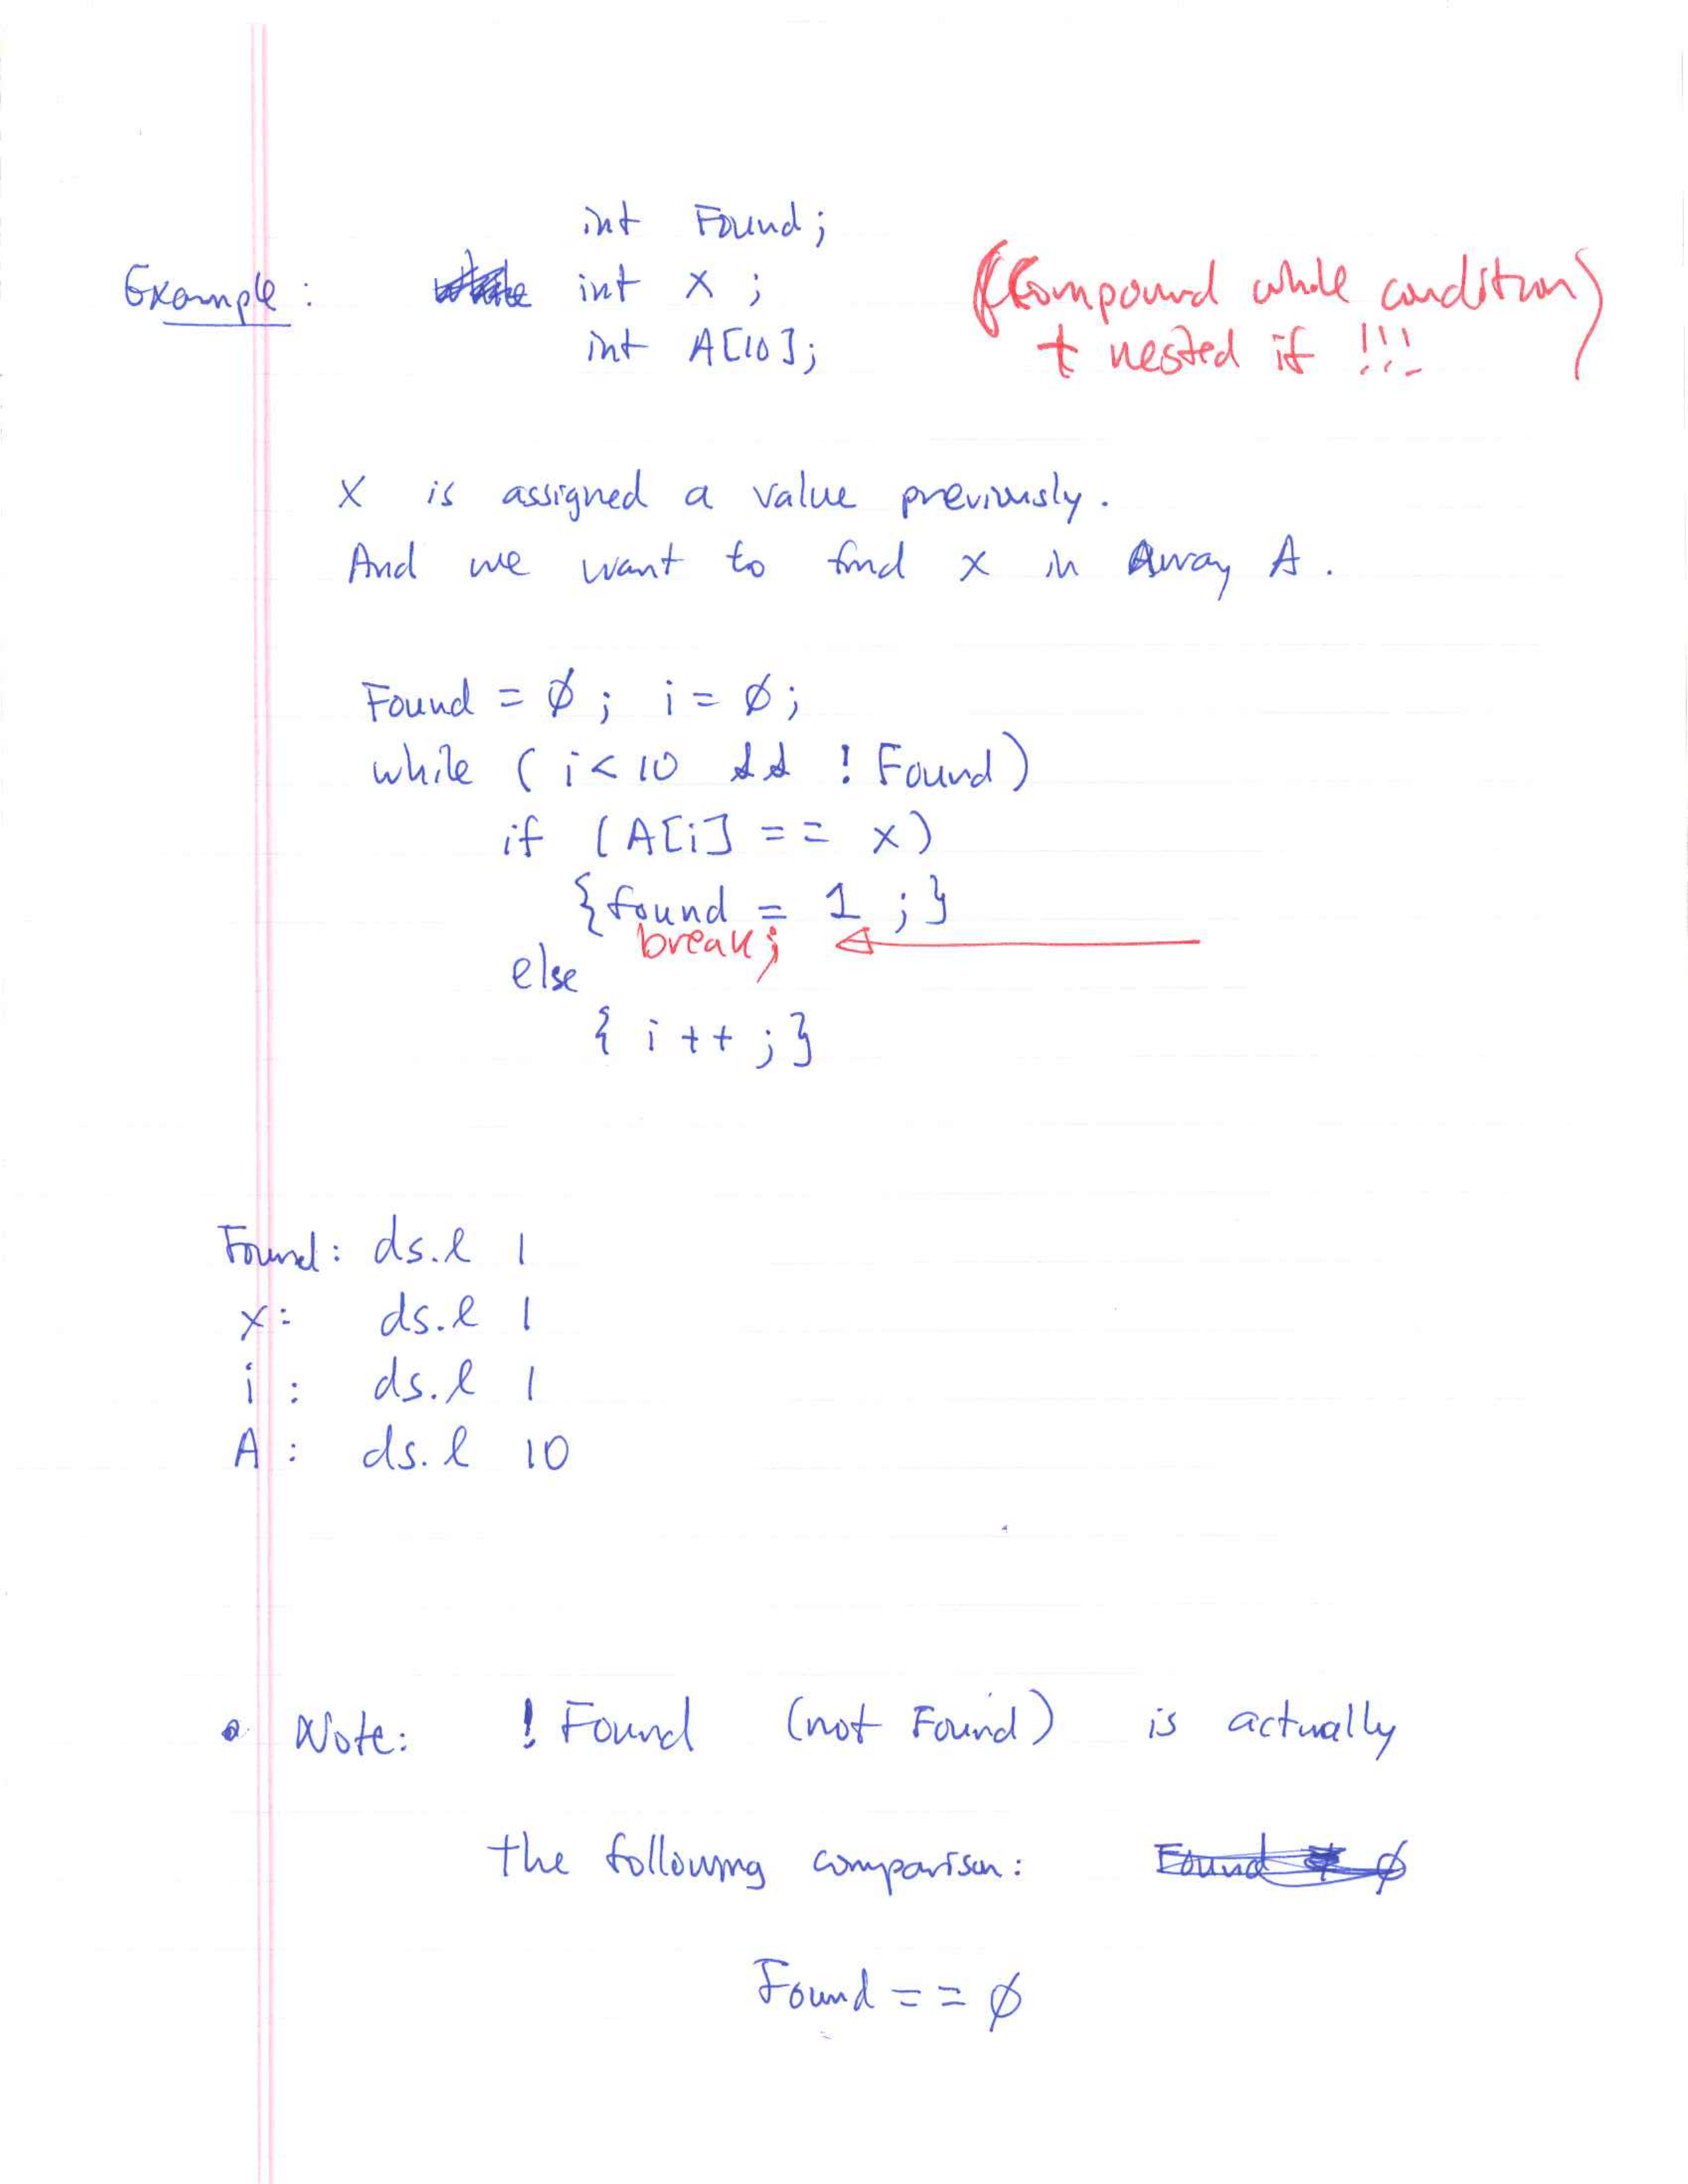 int Found;
Example: int x ; (Compound while condition)
int A[10]; + nested if !!!
X is assigned a value previously.
And we want to find x in Array A.
Found = Ø ; i = Ø;
while ( i < 10 && ! Found)
if (A[i] == x)
{found = 1 ;}
break;
else
{ i ++ ;}
Found: ds.l 1
x: ds.l 1
i : ds.l 1
A : ds.l 10
• Note: ! Found (not Found) is actually
the following comparison: Found Ø
Found == Ø